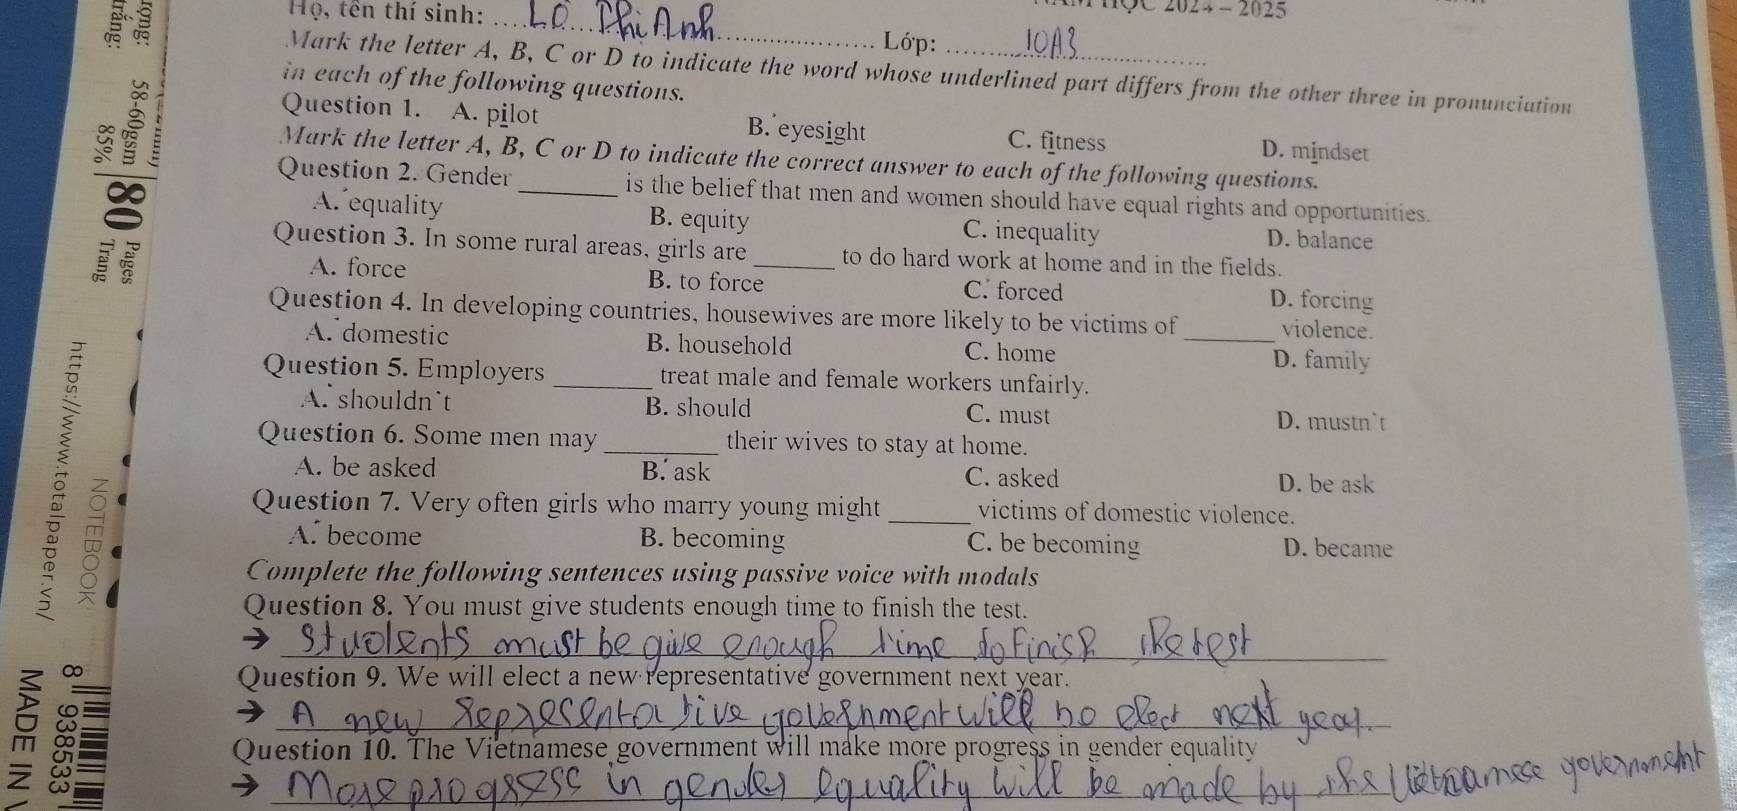 HỌC 2024 – 2025
Họ, tên thí sinh: .... Lê Thi Anh .................... Lớp: .......... 10A3 ..................
Mark the letter A, B, C or D to indicate the word whose underlined part differs from the other three in pronunciation
in each of the following questions.
Question 1. A. pilot B. eyesight C. fitness D. mindset
Mark the letter A, B, C or D to indicate the correct answer to each of the following questions.
Question 2. Gender ________ is the belief that men and women should have equal rights and opportunities.
A. equality B. equity C. inequality D. balance
Question 3. In some rural areas, girls are ________ to do hard work at home and in the fields.
A. force B. to force C. forced D. forcing
Question 4. In developing countries, housewives are more likely to be victims of ________ violence.
A. domestic B. household C. home D. family
Question 5. Employers ________ treat male and female workers unfairly.
A. shouldn't B. should C. must D. mustn't
Question 6. Some men may ________ their wives to stay at home.
A. be asked B. ask C. asked D. be ask
Question 7. Very often girls who marry young might ________ victims of domestic violence.
A. become B. becoming C. be becoming D. became
Complete the following sentences using passive voice with modals
Question 8. You must give students enough time to finish the test.
➔ Students must be give enough time to finish the test
Question 9. We will elect a new representative government next year.
➔ A new representative government will be elect next year.
Question 10. The Vietnamese government will make more progress in gender equality
➔ More progress in gender equality will be made by the Vietnamese government
ượng: 58-60gsm
trắng: 85%
80 Pages
Trang
NOTEBOOK
https://www.totalpaper.vn/
8 938533
MADE IN V